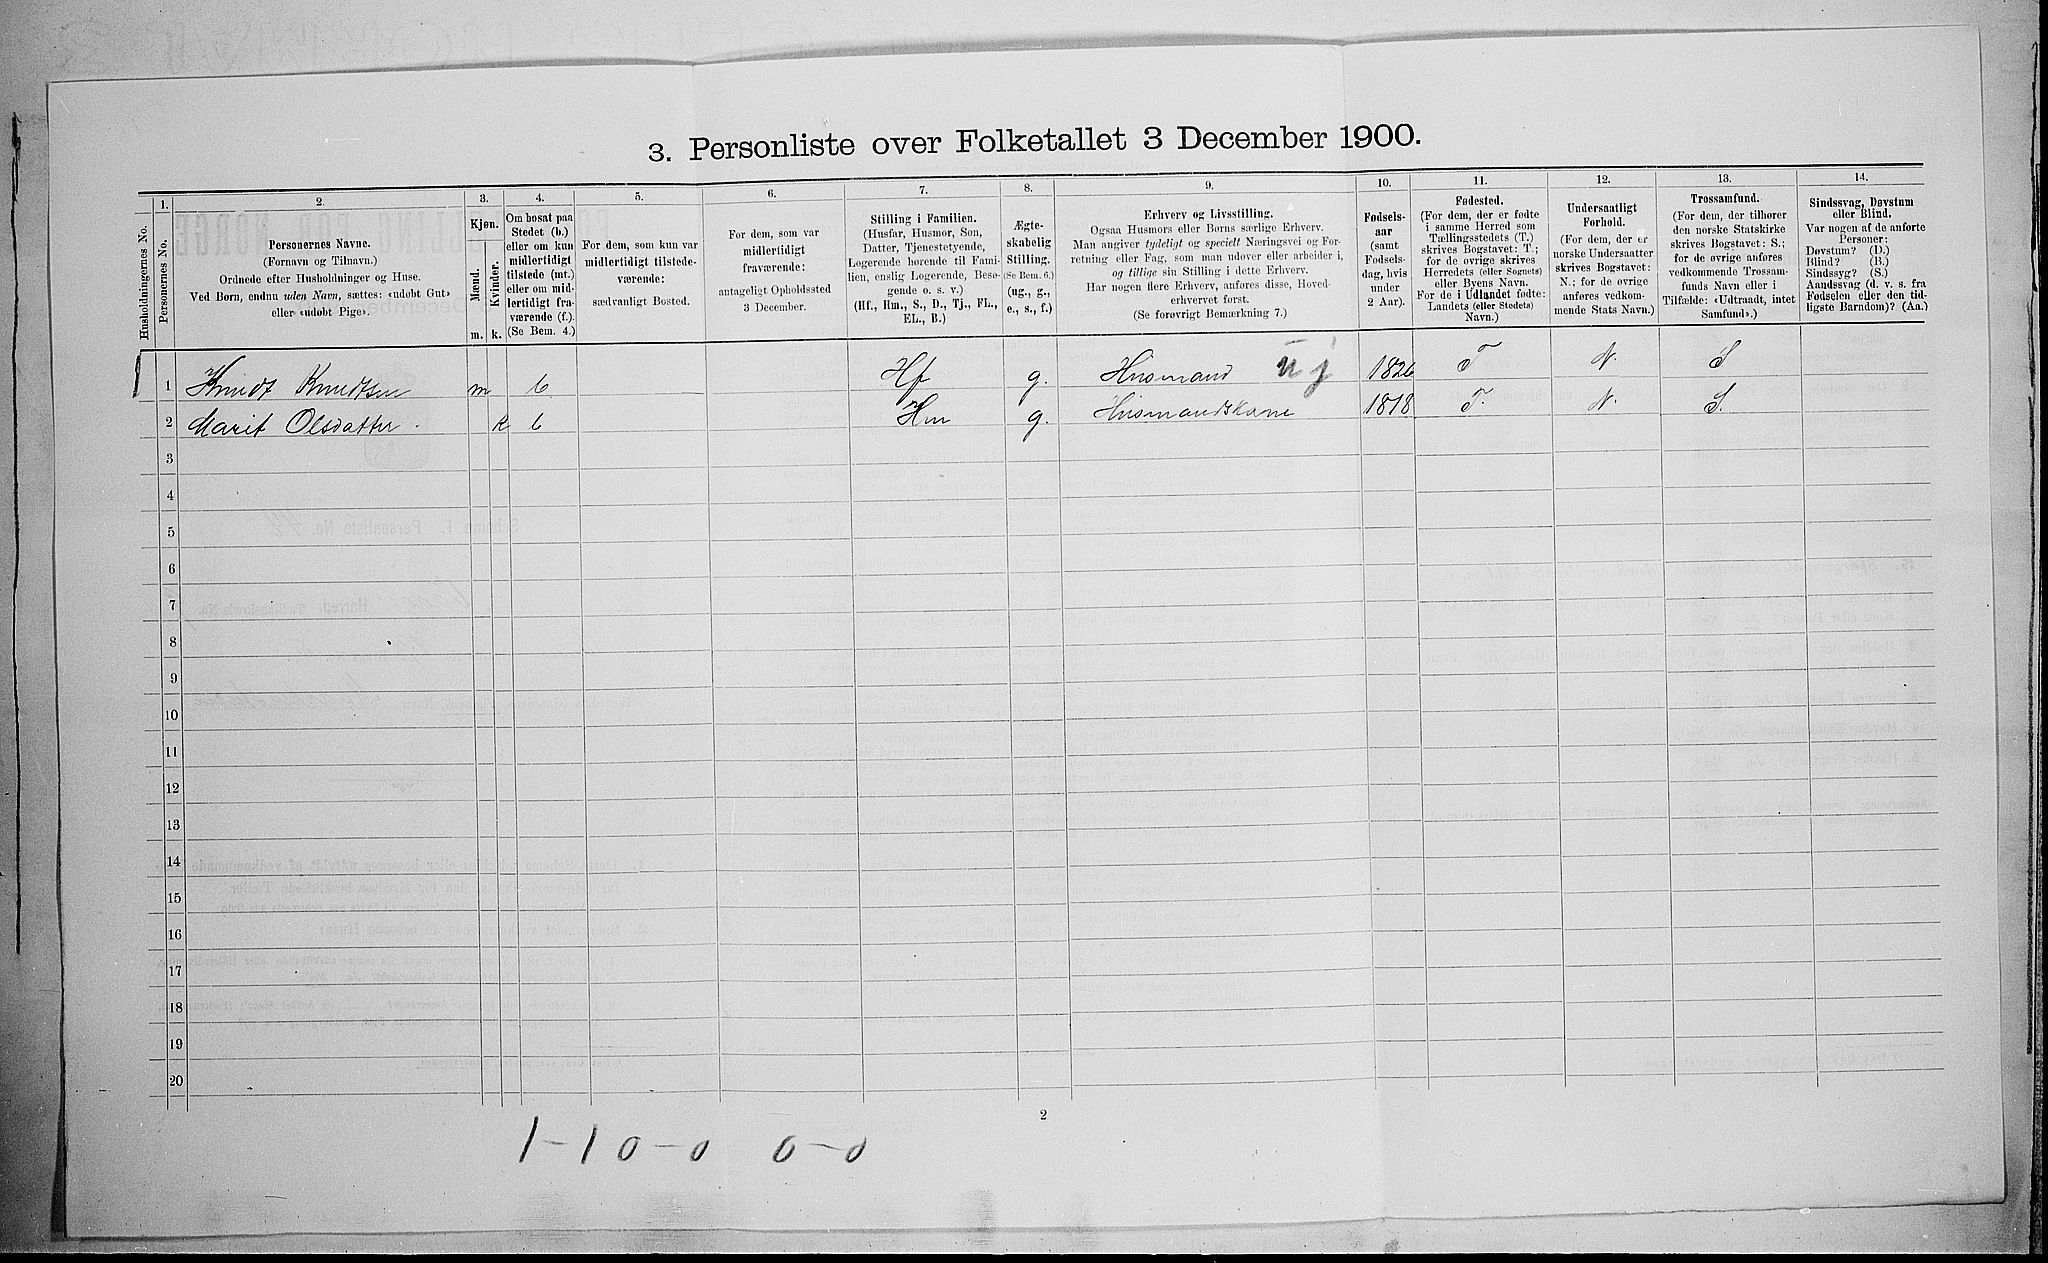 3. Personliste over Folketallet 3 December 1900.
Husholdningernes No.
1.
Personernes No.
2.
Personernes Navne.
(Fornavn og Tilnavn.)
Ordnede efter Husholdninger og Huse.
Ved Børn, endnu uden Navn, sættes: «udøbt Gut»
eller «udøbt Pige».
3.
Kjøn.
Mænd.
Kvinder.
m. k.
4.
Om bosat paa
Stedet (b.)
eller om kun
midlertidigt
tilstede (mt.)
eller om mid-
lertidigt fra-
værende (f.).
(Se Bem. 4.)
5.
For dem, som kun var
midlertidigt tilstede-
værende:
sædvanligt Bosted.
6.
For dem, som var
midlertidigt
fraværende:
antageligt Opholdssted
3 December.
7.
Stilling i Familien.
(Husfar, Husmor, Søn,
Datter, Tjenestetyende,
Logerende hørende til Fami-
lien, enslig Logerende, Besø-
gende o. s. v.)
(Hf., Hm., S., D., Tj., FL.,
EL., B.)
8.
Ægte-
skabelig
Stilling.
(Se Bem. 6.)
(ug., g.,
e., s., f.)
9.
Erhverv og Livsstilling.
Ogsaa Husmors eller Børns særlige Erhverv.
Man angiver tydeligt og specielt Næringsvei og For-
retning eller Fag, som man udøver eller arbeider i,
og tillige sin Stilling i dette Erhverv.
Har nogen flere Erhverv, anføres disse, Hoved-
erhvervet først.
(Se forøvrigt Bemærkning 7.)
10.
Fødsels-
aar
(samt
Fødsels-
dag, hvis
under
2 Aar).
11.
Fødested.
(For dem, der er fødte
i samme Herred som
Tællingsstedets (T.)
skrives Bogstavet: T.;
for de øvrige skrives
Herredets (eller Sognets)
eller Byens Navn.
For de i Udlandet fødte:
Landets (eller Stedets)
Navn.)
12.
Undersaatligt
Forhold.
(For dem, der er
norske Undersaatter
skrives Bogstavet:
N.; for de øvrige
anføres vedkom-
mende Stats Navn.)
13.
Trossamfund.
(For dem, der tilhører
den norske Statskirke
skrives Bogstavet: S.;
for de øvrige anføres
vedkommende Trossam-
funds Navn eller i
Tilfælde: «Udtraadt, intet
Samfund».)
14.
Sindssvag, Døvstum
eller Blind.
Var nogen af de anførte
Personer:
Døvstum? (D.)
Blind? (B.)
Sindssyg? (S.)
Aandssvag (d. v. s. fra
Fødselen eller den tid-
ligste Barndom)? (Aa.)
1 1 Knudt Knudtsen m b Hf g. Husmand uj 1826 T N. S
2 Marit Olsdatter. k b Hm g. Husmandskone 1818 T. N. S.
3
4
5
6
7
8
9
10
11
12
13
14
15
16
17
18
19
20
2
1-1 0-0 0-0